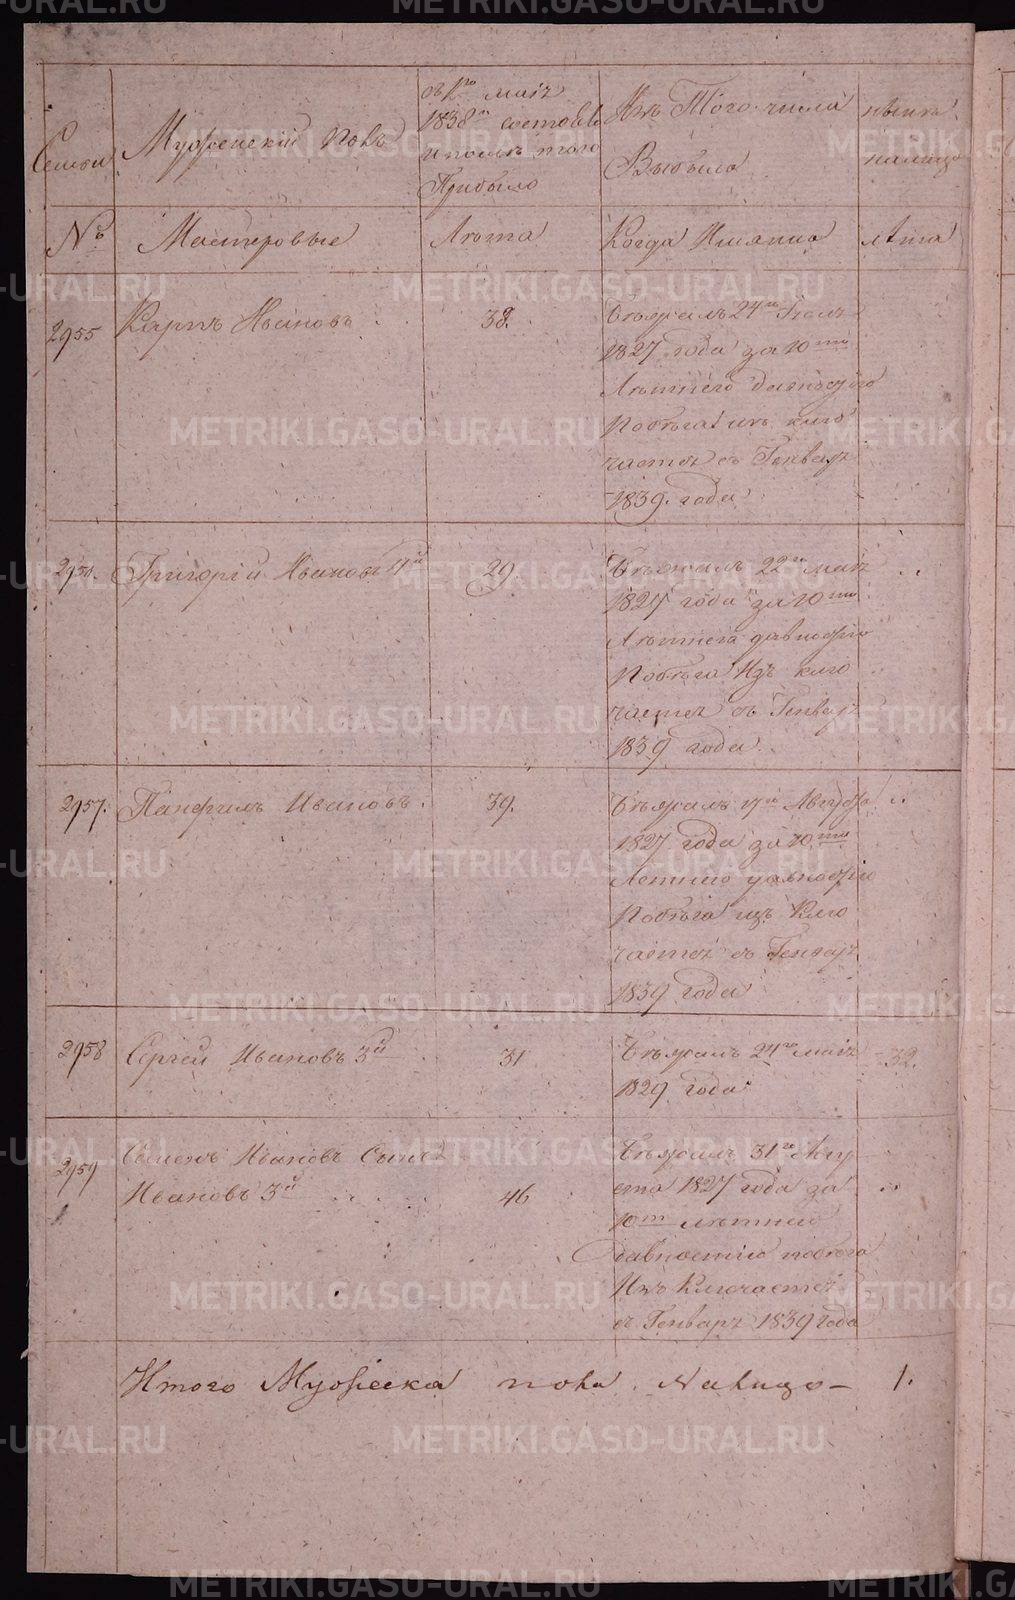 METRIKI.GASO-URAL.RU
Семьи
Мужескiй полъ
съ 1го маiя
1838го состояло
и послѣ того
Прибыло
Изъ Того числа
Выбыло
нынѣ
налицо
№ъ
Мастеровые
Лѣта
Когда Имянно
лѣта
2955
Карпъ Ивановъ
38.
Бѣжалъ 24го Iюля
1827 года за 10ти
Лѣтнею давностiю
Побѣга изъ клю
чается съ Генваря
1839. года
2956.
Григорiй Ивановъ 4й
29.
Бѣжалъ 22го маiя
1827 года за 10ти
Лѣтнею давностiю
Побѣга Изъ клю
чается съ Генваря
1839 года.
2957.
Панфилъ Ивановъ.
39.
Бѣжалъ 17го Августа
1827 года за 10ти
Летнею давностiю
Побѣга изъ Клю
чается съ Генваря
1839 года
2958
Сергей Ивановъ 3й
31
Бѣжалъ 24го маiя
1829 года
32.
2959
Семенъ Ивановъ Сынъ
Ивановъ 3й
46
Бѣжалъ 31го Авгу
ста 1827 года за
10ти лѣтнею
давностiю побѣга
Изъ Ключается
съ Генваря 1839 года
Итого Мужеска пола Налицо – 1.